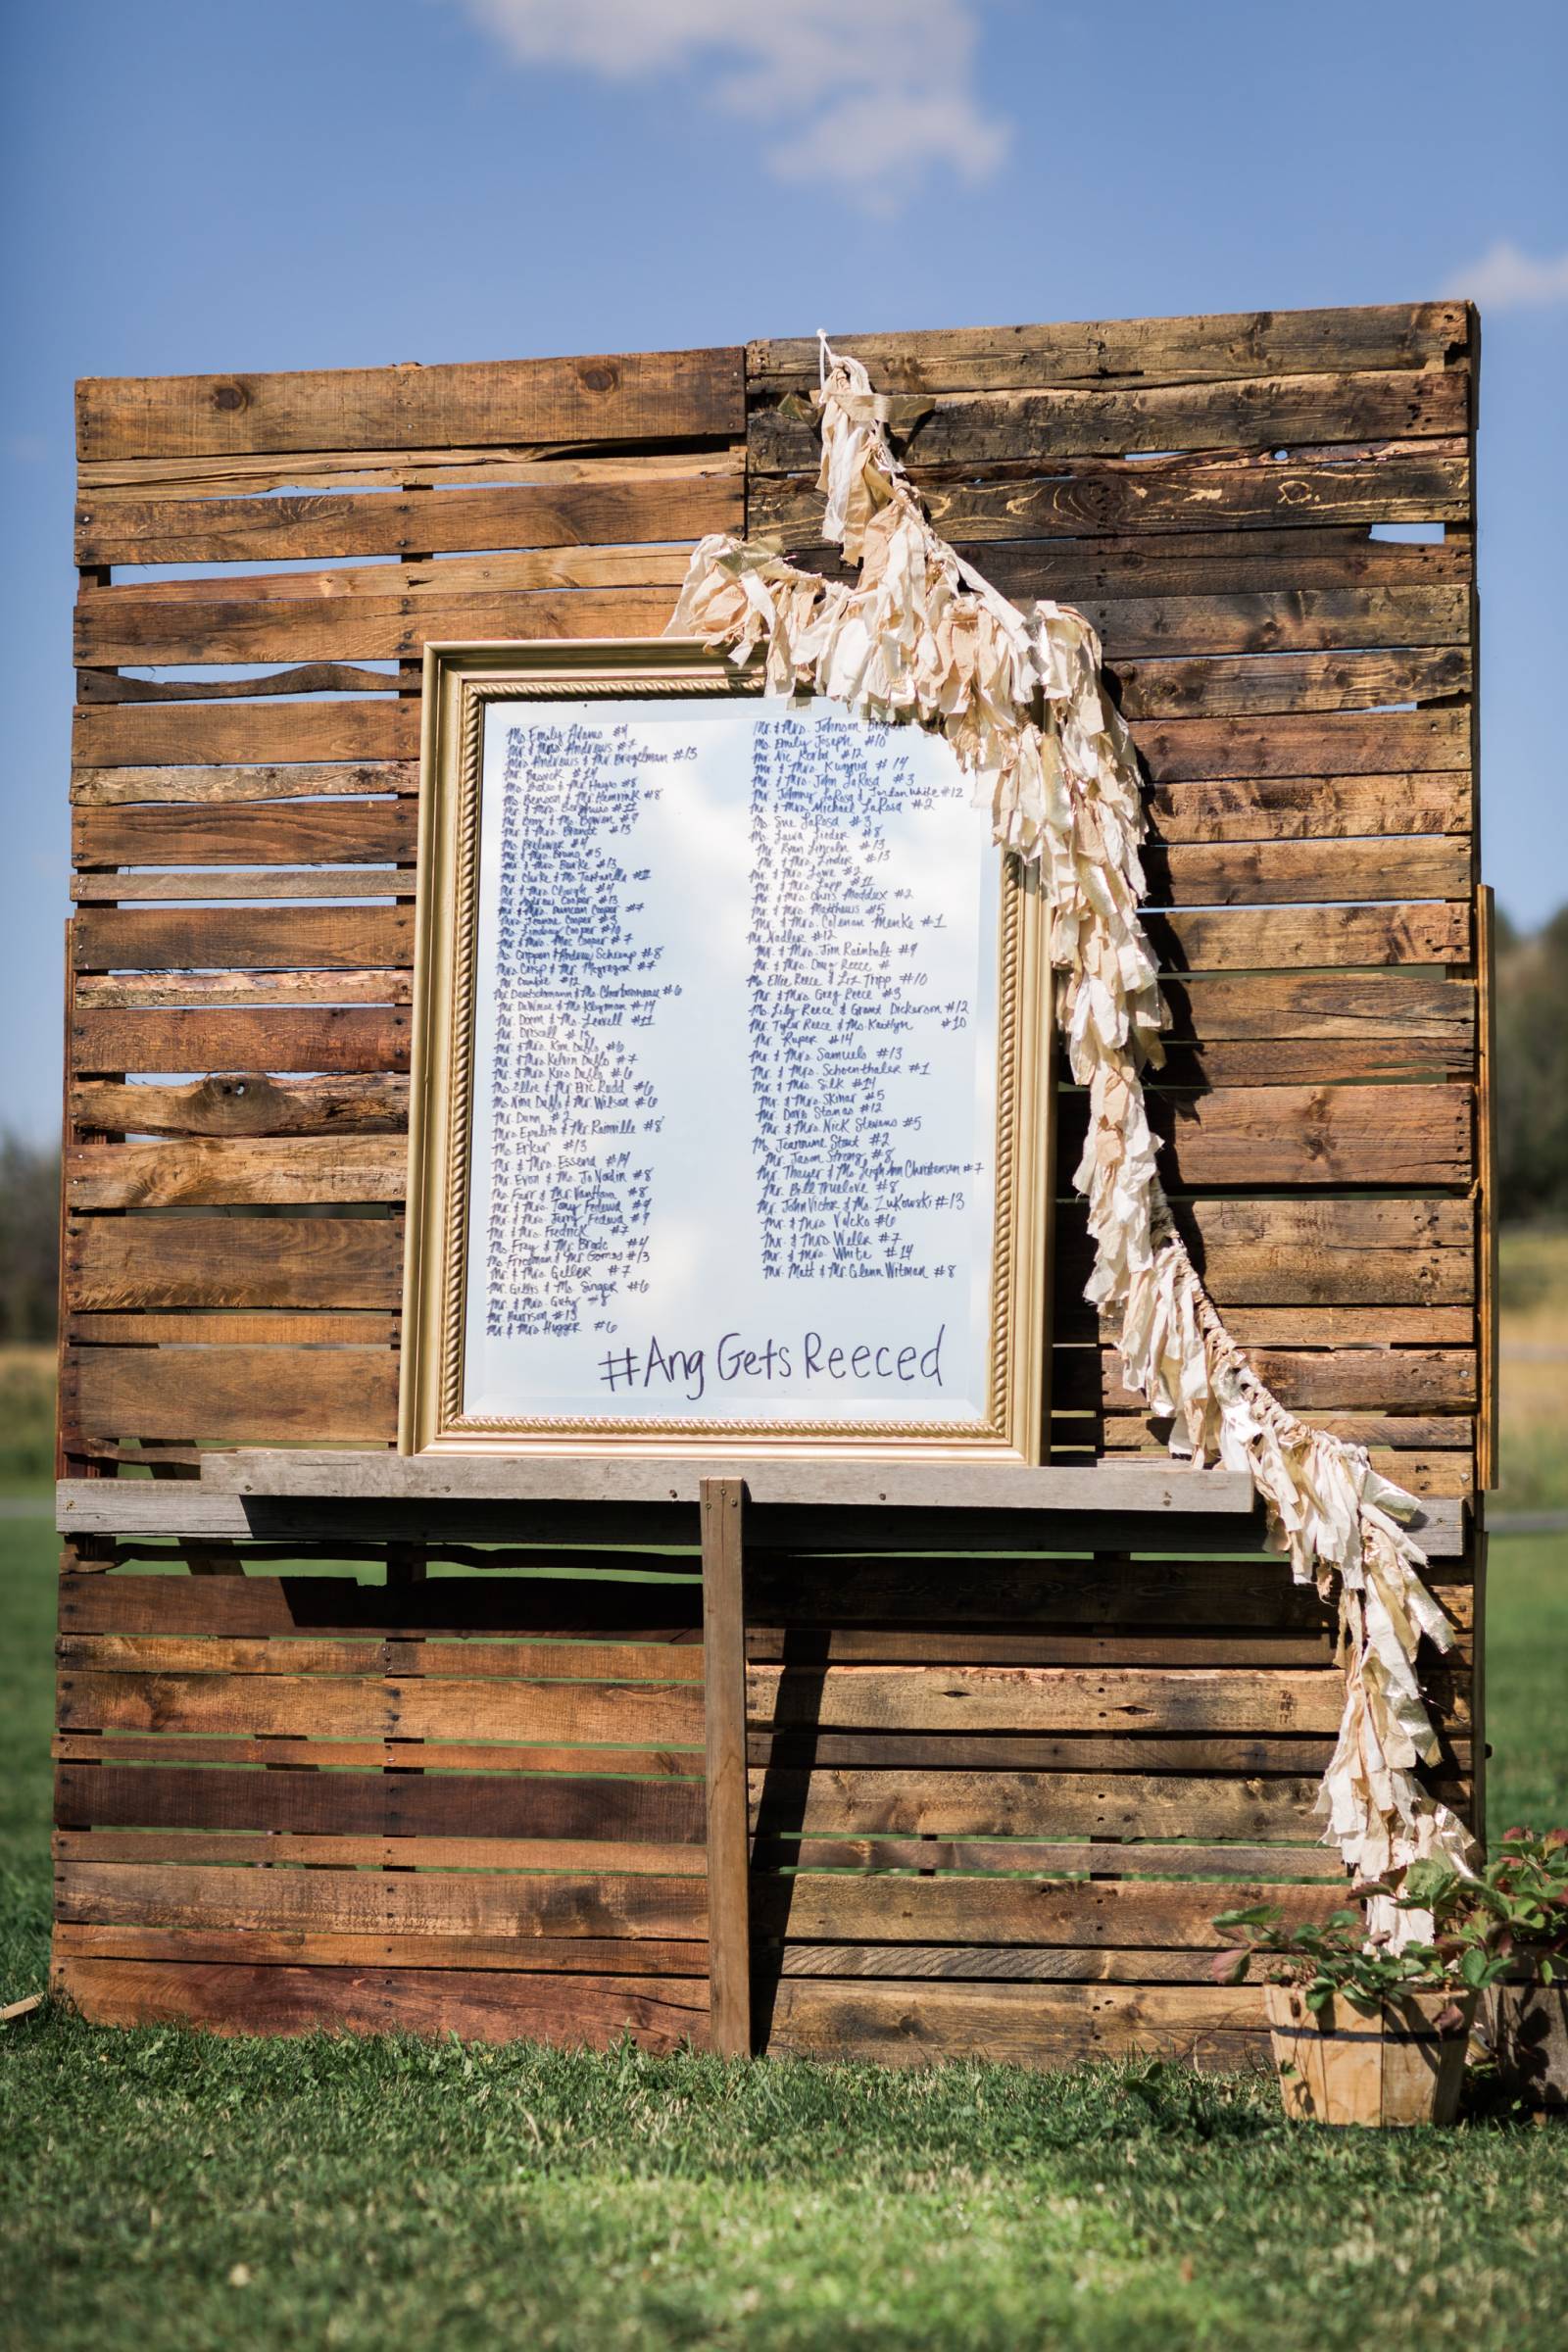 Ms. Emily Adams #4
Mr. & Mrs. Andrews #7
Mrs. Andrews & Mr. Bregelman #13
Mr. #14
Ms. & Mr. Hays #8
Ms. Benson & Mr. #8
Mr. & Mrs. #11
Mr. & Ms. Bowen #9
Mr. & Mrs. Brandt #13
Ms. #4
Mr. & Mrs. Bruno #5
Mr. & Mrs. Burke #13
Mr. Clarke & Ms.
Mr. & Mrs. Clough #4
Mr. Andrew Cooper #13
Mr. & Mrs. Duncan Cooper #7
Mrs. Joanne Cooper #3
Ms. Lindsay Cooper #10
Mr. & Mrs. Mac Cooper #7
Ms. & Andrew #8
Mrs. Crisp & Mr. McGregor #7
Mr. #12
Mr. Deutschmann & Ms. Charbonneau #6
Mr. & Ms. Klugman #14
Mr. Dorm & Ms. Leavell #11
Mr. Driscoll #13
Mr. & Mrs. Kim Duffo #6
Mr. & Mrs. Kelvin Duffo #7
Mr. & Mrs. Kris Duffo #6
Ms. Ellie & Mr. Eric Rudd #6
Ms. Nina Duffo & Mr. Wilson #6
Mr. Dunn #2
Mrs. & Mr. Rainville #8
Ms. Erkur #13
Mr. & Mrs. Essend #14
Mr. Evon & Ms. Jo Vardin #8
Ms. Farr & Mr. VanHorn #8
Mr. & Mrs. Tony Fedewa #9
Mr. & Mrs. Jerry Fedewa #9
Mr. & Mrs. Fedrick #7
Ms. Frey & Mr. Brode #4
Ms. Friedman & Mr. Gomas #13
Mr. & Mrs. Geller #7
Mr. Gillis & Ms. Singer #6
Mr. & Mrs. #8
Mr. Harrison #13
Mr. & Mrs. Hugger #6
Mr. & Mrs. Johnson
Ms. Emily Joseph #10
Mr. Nic Korba #12
Mr. & Mrs. #14
Mr. & Mrs. John LaRosa #3
Mr. Johnny LaRosa & Jordan White #12
Mr. & Mrs. Michael LaRosa #2
Ms. Sue LaRosa #3
Ms. Laura Linder #8
Mr. Ryan Lincoln #13
Mr. & Mrs. Linder #13
Mr. & Mrs. Lowe #2
Mr. & Mrs. Lupp #11
Mr. & Mrs. Chris Maddux #2
Mr. & Mrs. Matthews #5
Mr. & Mrs. Coleman Menke #1
Mr. Nadler #12
Mr. & Mrs. Jim Rainbolt #9
Mr. & Mrs. Doug Reece #
Ms. Ellie Reece & Liz Tripp #10
Mr. & Mrs. Greg Reece #3
Ms. Lily Reece & Grant Dickerson #12
Mr. Tyler Reece & Ms. Kaitlyn #10
Mr. Ruper #14
Mr. & Mrs. Samuels #13
Mr. & Mrs. Schoenthaler #1
Mr. & Mrs. Silk #14
Mr. & Mrs. Skinar #5
Mr. Dave Stamas #12
Mr. & Mrs. Nick Stevens #5
Ms. Jeannine Stout #2
Mr. Jason Strong #8
Mr. Thayer & Ms. Leigh Ann Christensen #7
Mr. Bill Truelove #8
Mr. John Victor & Ms. Zukowski #13
Mr. & Mrs. Volcko #6
Mr. & Mrs. Wells #7
Mr. & Mrs. White #14
Mr. Matt & Mr. Glenn Witman #8
#Ang Gets Reeced